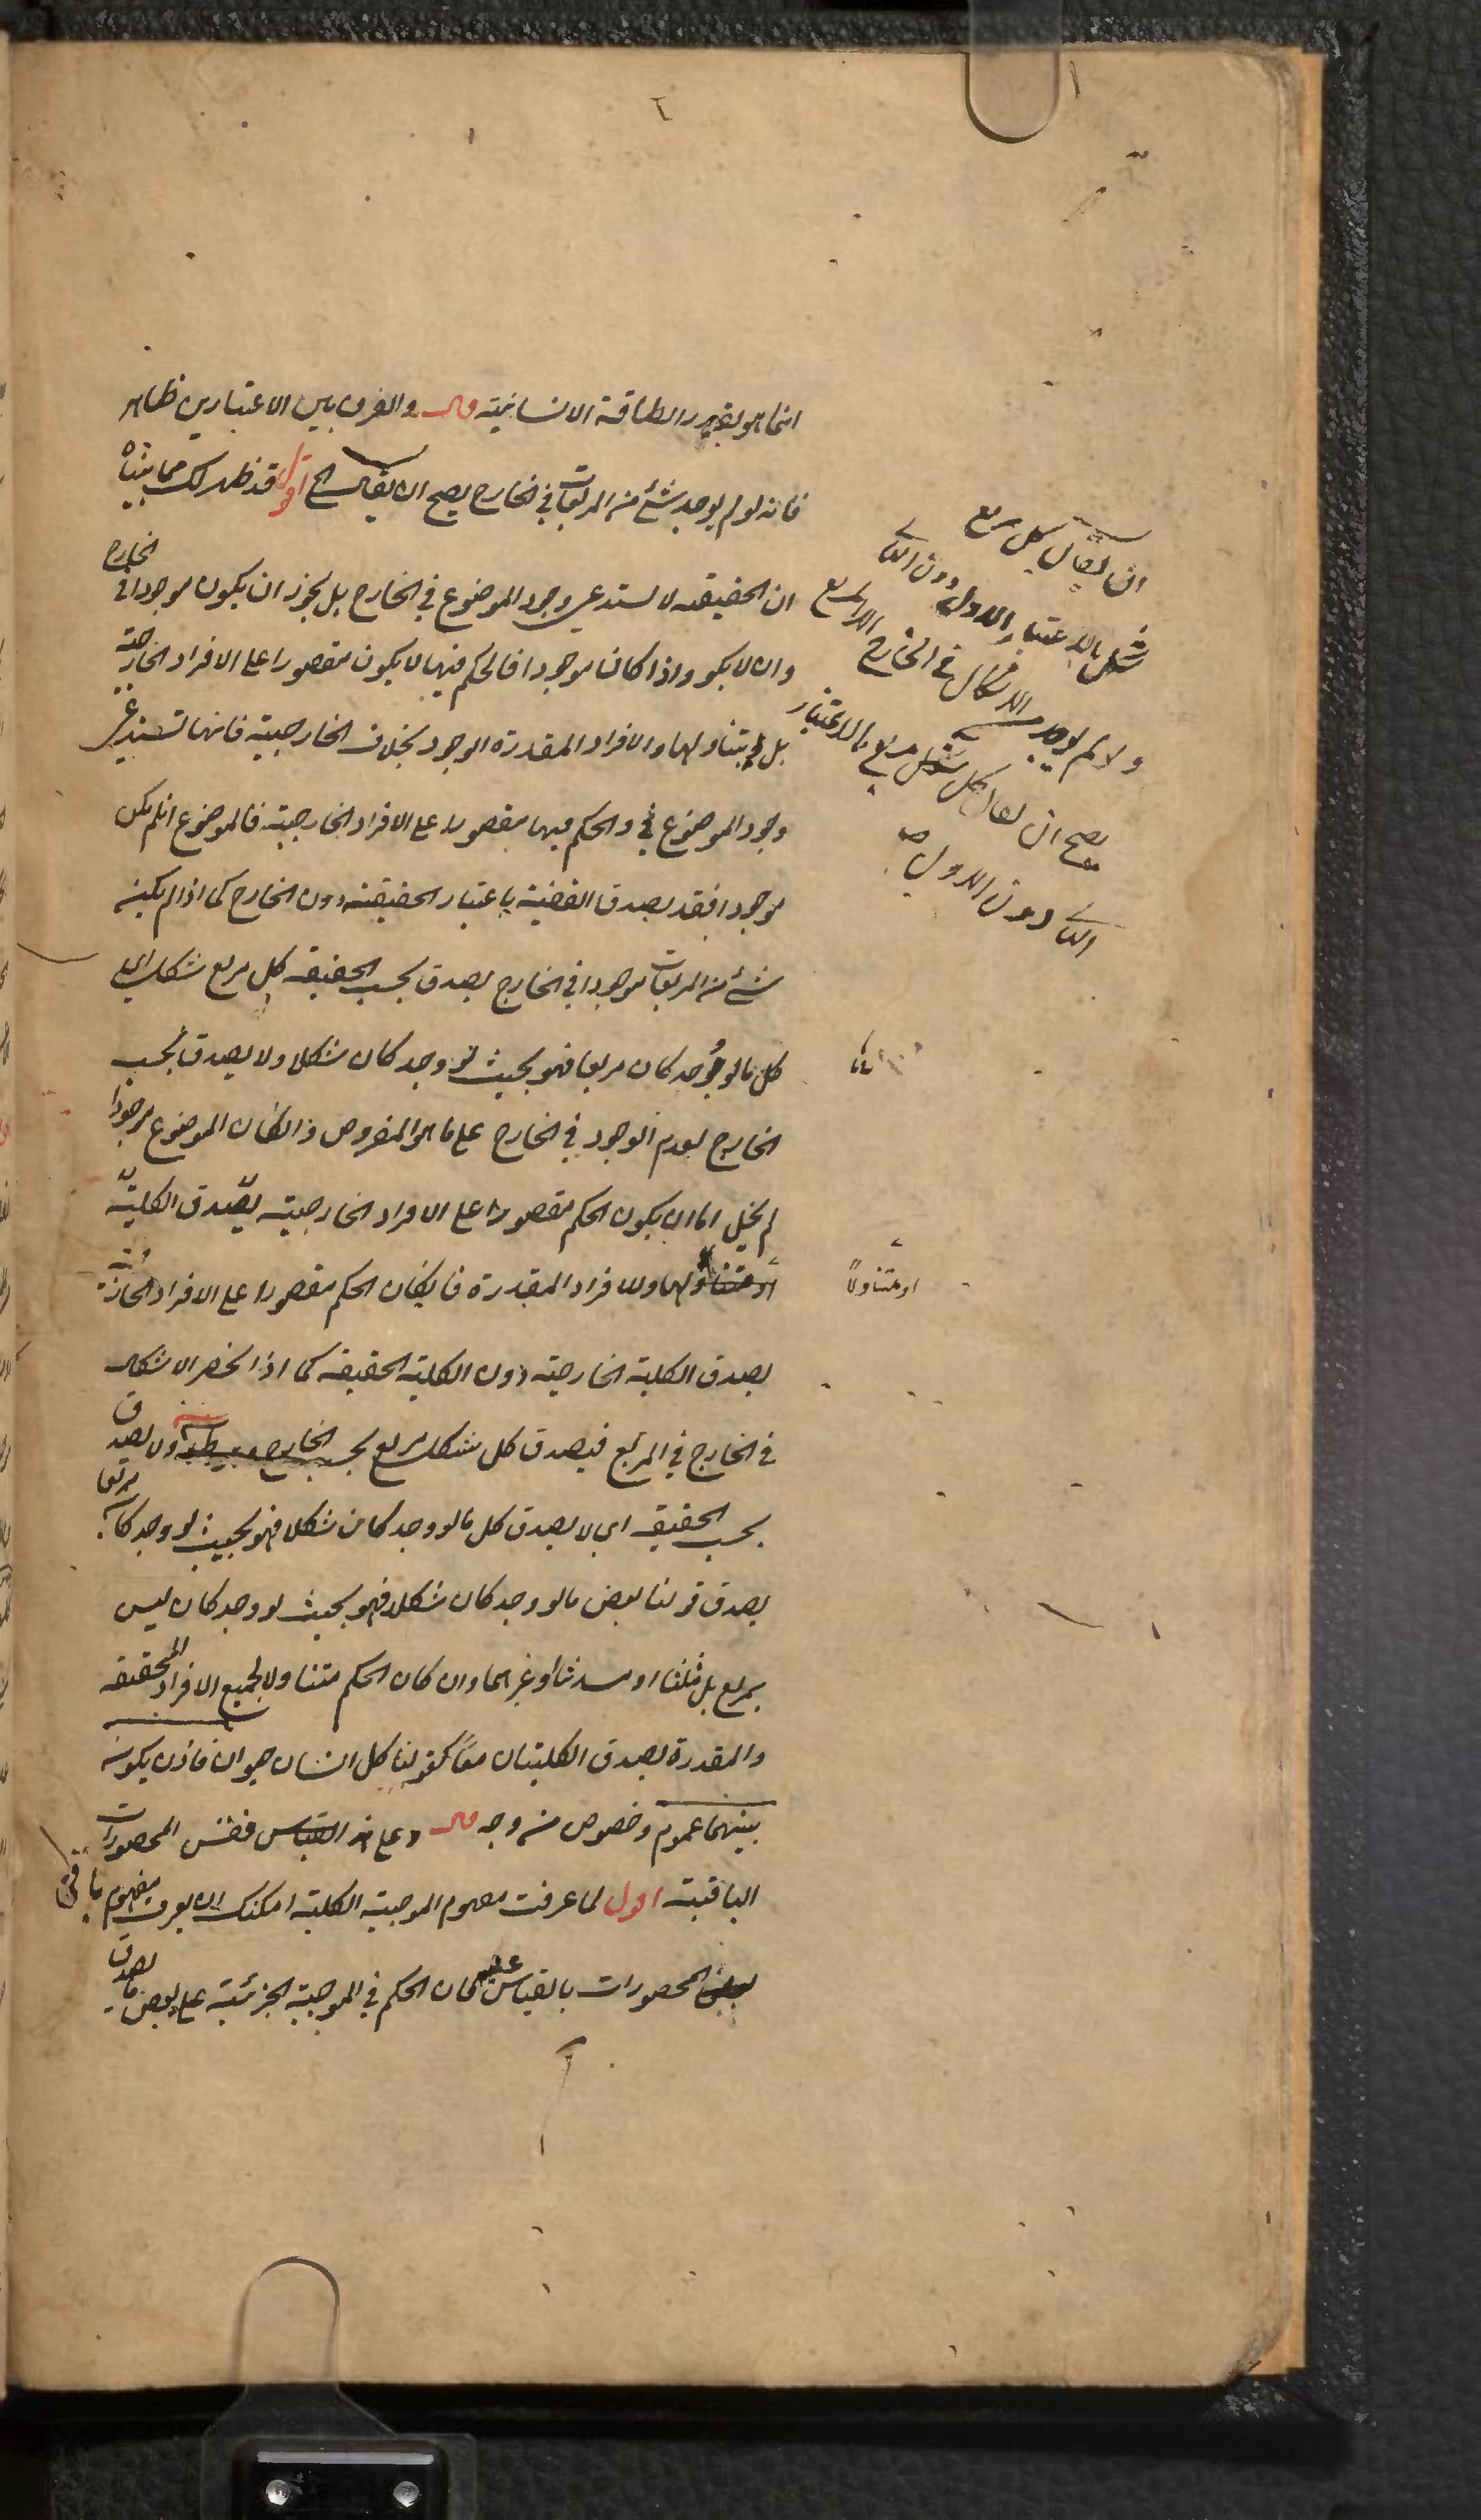 انما هو بقدر الطاقة الانسانية قال والفرق بين الاعتبارين ظاهر
فانه لو لم يوجد شئ من المربعات في الخارج يصح ان يقال الخ اقول قد ظهر لك مما بيناه
ان الحقيقية لا تستدعي وجود الموضوع في الخارج بل يجوز ان يكون موجودا في الخارج
وان لا يكون واذا كان موجودا فالحكم فيها لا يكون مقصورا على الافراد الخارجية
بل يتناولها والافراد المقدرة الوجود بخلاف الخارجية فانها تستدعي
وجود الموضوع في والحكم فيها مقصورا على الافراد الخارجية فالموضوع ان لم يكن
موجودا فقد يصدق القضية باعتبار الحقيقة دون الخارج كما اذا لم يكن
شئ من المربعات موجودا في الخارج يصدق بحسب الحقيقة كل مربع شكل اي
كل ما لو وجد كان مربعا فهو بحيث لو وجد كان شكلا ولا يصدق بحسب
الخارج لعدم الوجود في الخارج على ما هو المفروض وان كان الموضوع موجودا
لم يخل اما ان يكون الحكم مقصورا على الافراد الخارجية يصدق الكلية
او متناولها وللافراد المقدرة فان كان الحكم مقصورا على الافراد الخارجية
يصدق الكلية الخارجية دون الكلية الحقيقية كما اذا انحصر الاشكال
في الخارج في المربع فيصدق كل شكل مربع بحسب الخارج ولا يصدق
بحسب الحقيقة اي لا يصدق كل ما لو وجد كان شكلا فهو بحيث لو وجد كان مربعا
يصدق قولنا بعض ما لو وجد كان شكلا فهو بحيث لو وجد كان ليس
بمربع بل مثلثا او مسدسا او غيرهما وان كان الحكم متناولا لجميع الافراد المحققة
والمقدرة يصدق الكليتان معًا كقولنا كل انسان حيوان فاذن يكون
بينهما عموم وخصوص من وجه قال وعلى هذا القياس فقس المحصورات
الباقية اقول لما عرفت مفهوم الموجبة الكلية امكنك ان تعرف مفهوم باقي
المحصورات بالقياس عليه فان الحكم في الموجبة الجزئية على بعض ما يصدق
ان يقال كل مربع
شكل بالاعتبار الاول دون الثاني
ولو لم يوجد من الاشكال في الخارج الا المربع
يصح ان يقال كل شكل مربع بالاعتبار
الثاني دون الاول صح
او متناولًا